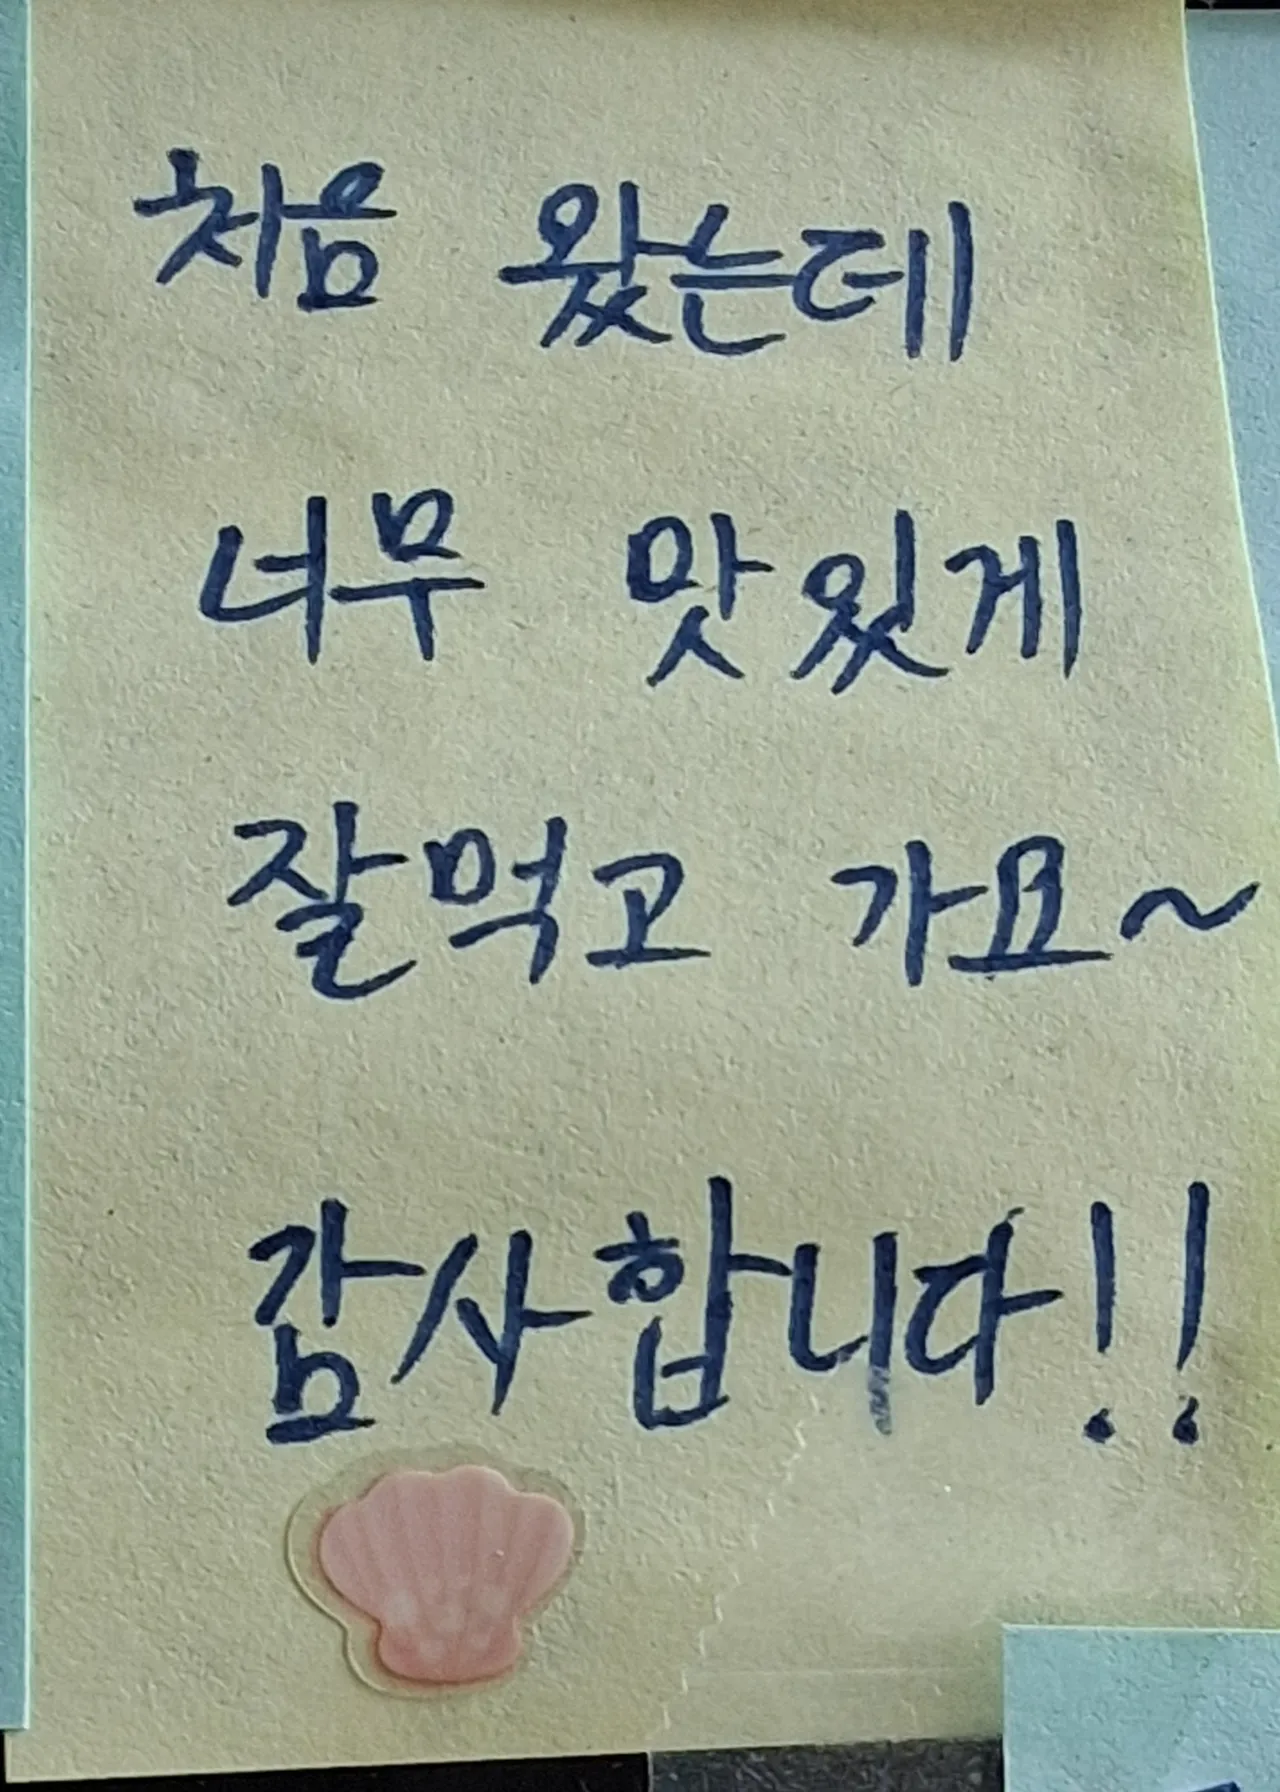 처음 왔는데
너무 맛있게
잘먹고 가요~
감사합니다!!